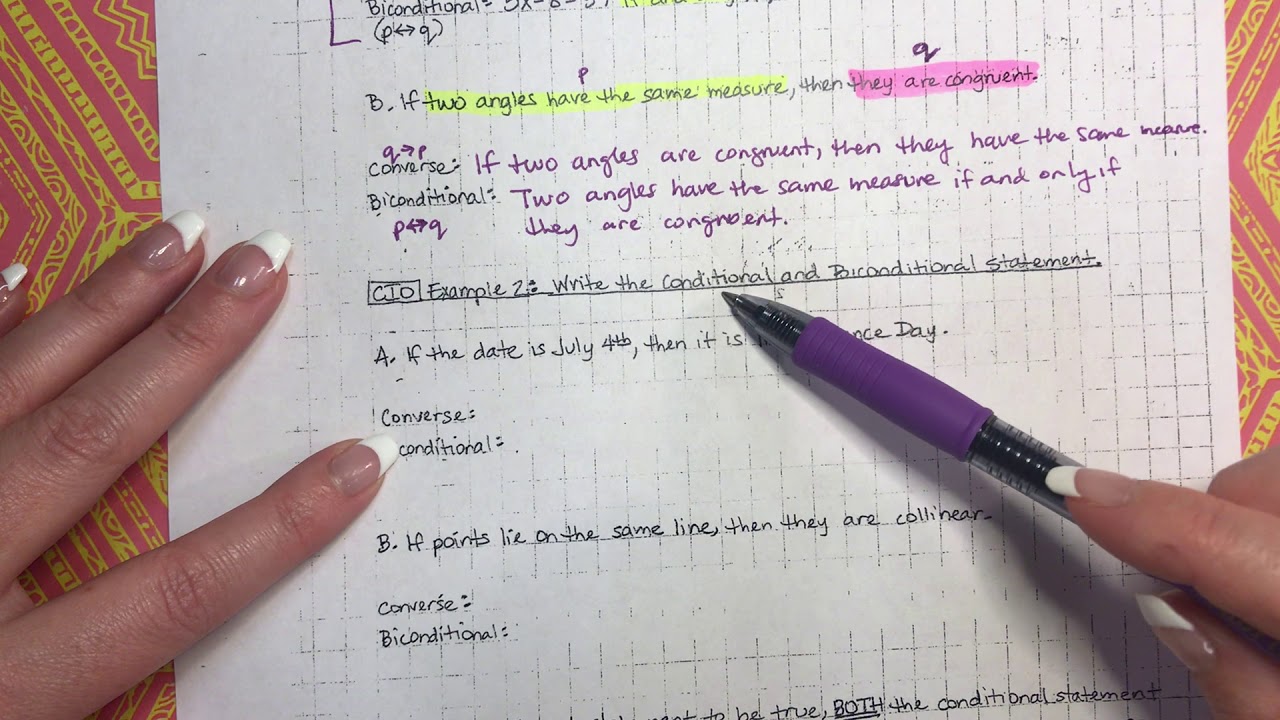 Biconditional:
(p↔q)
q
p
B. If two angles have the same measure, then they are congruent.
q→p
Converse: If two angles are congruent, then they have the same measure.
Biconditional: Two angles have the same measure if and only if
p↔q they are congruent.
CIO Example 2: Write the Conditional and Biconditional Statement.
A. If the date is July 4th, then it is nce Day.
Converse:
conditional:
B. If points lie on the same line, then they are collinear.
Converse:
Biconditional:
to be true, BOTH the conditional statement